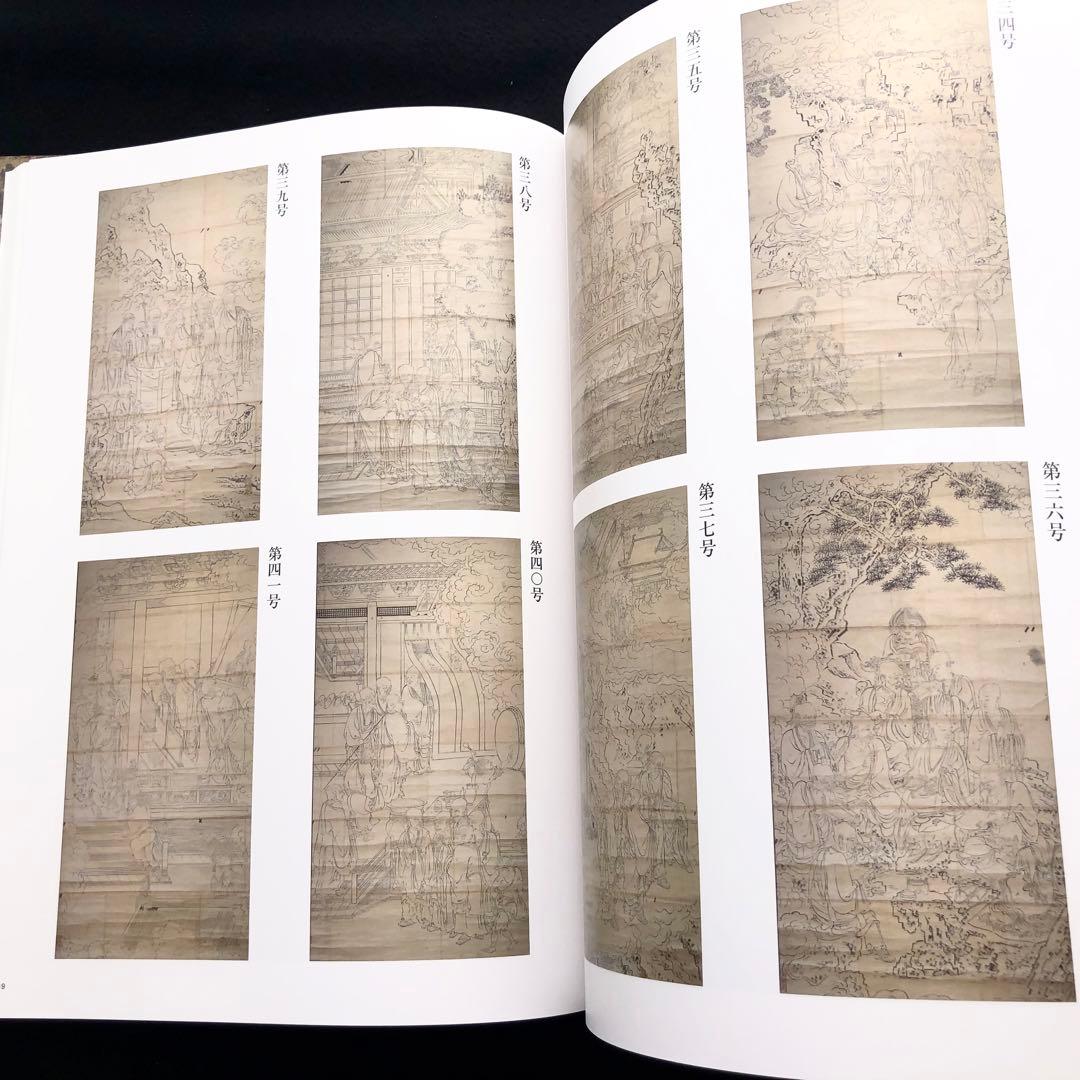 三四号
第三五号
第三六号
第三七号
第三八号
第三九号
第四〇号
第四一号
9